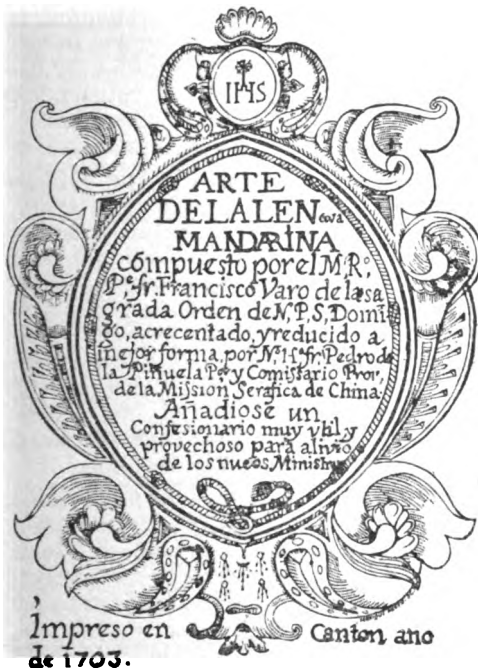 IHS
ARTE
DE LA LEN gua
MANDARINA
compuesto por el M. R.º
P.e fr. Francisco Varo de la sa
grada Orden de N. P. S. Domi
go, acrecentado, y reducido a
mejor forma, por N.º H.e fr. Pedro de
la Piñuela P.or y Comissario Prov.
de la Mission Serafica de China.
Añadiose un
Confesionario muy vtil, y
provechoso para alivio
de los nueos Ministros
Impreso en Canton ano
de 1703.